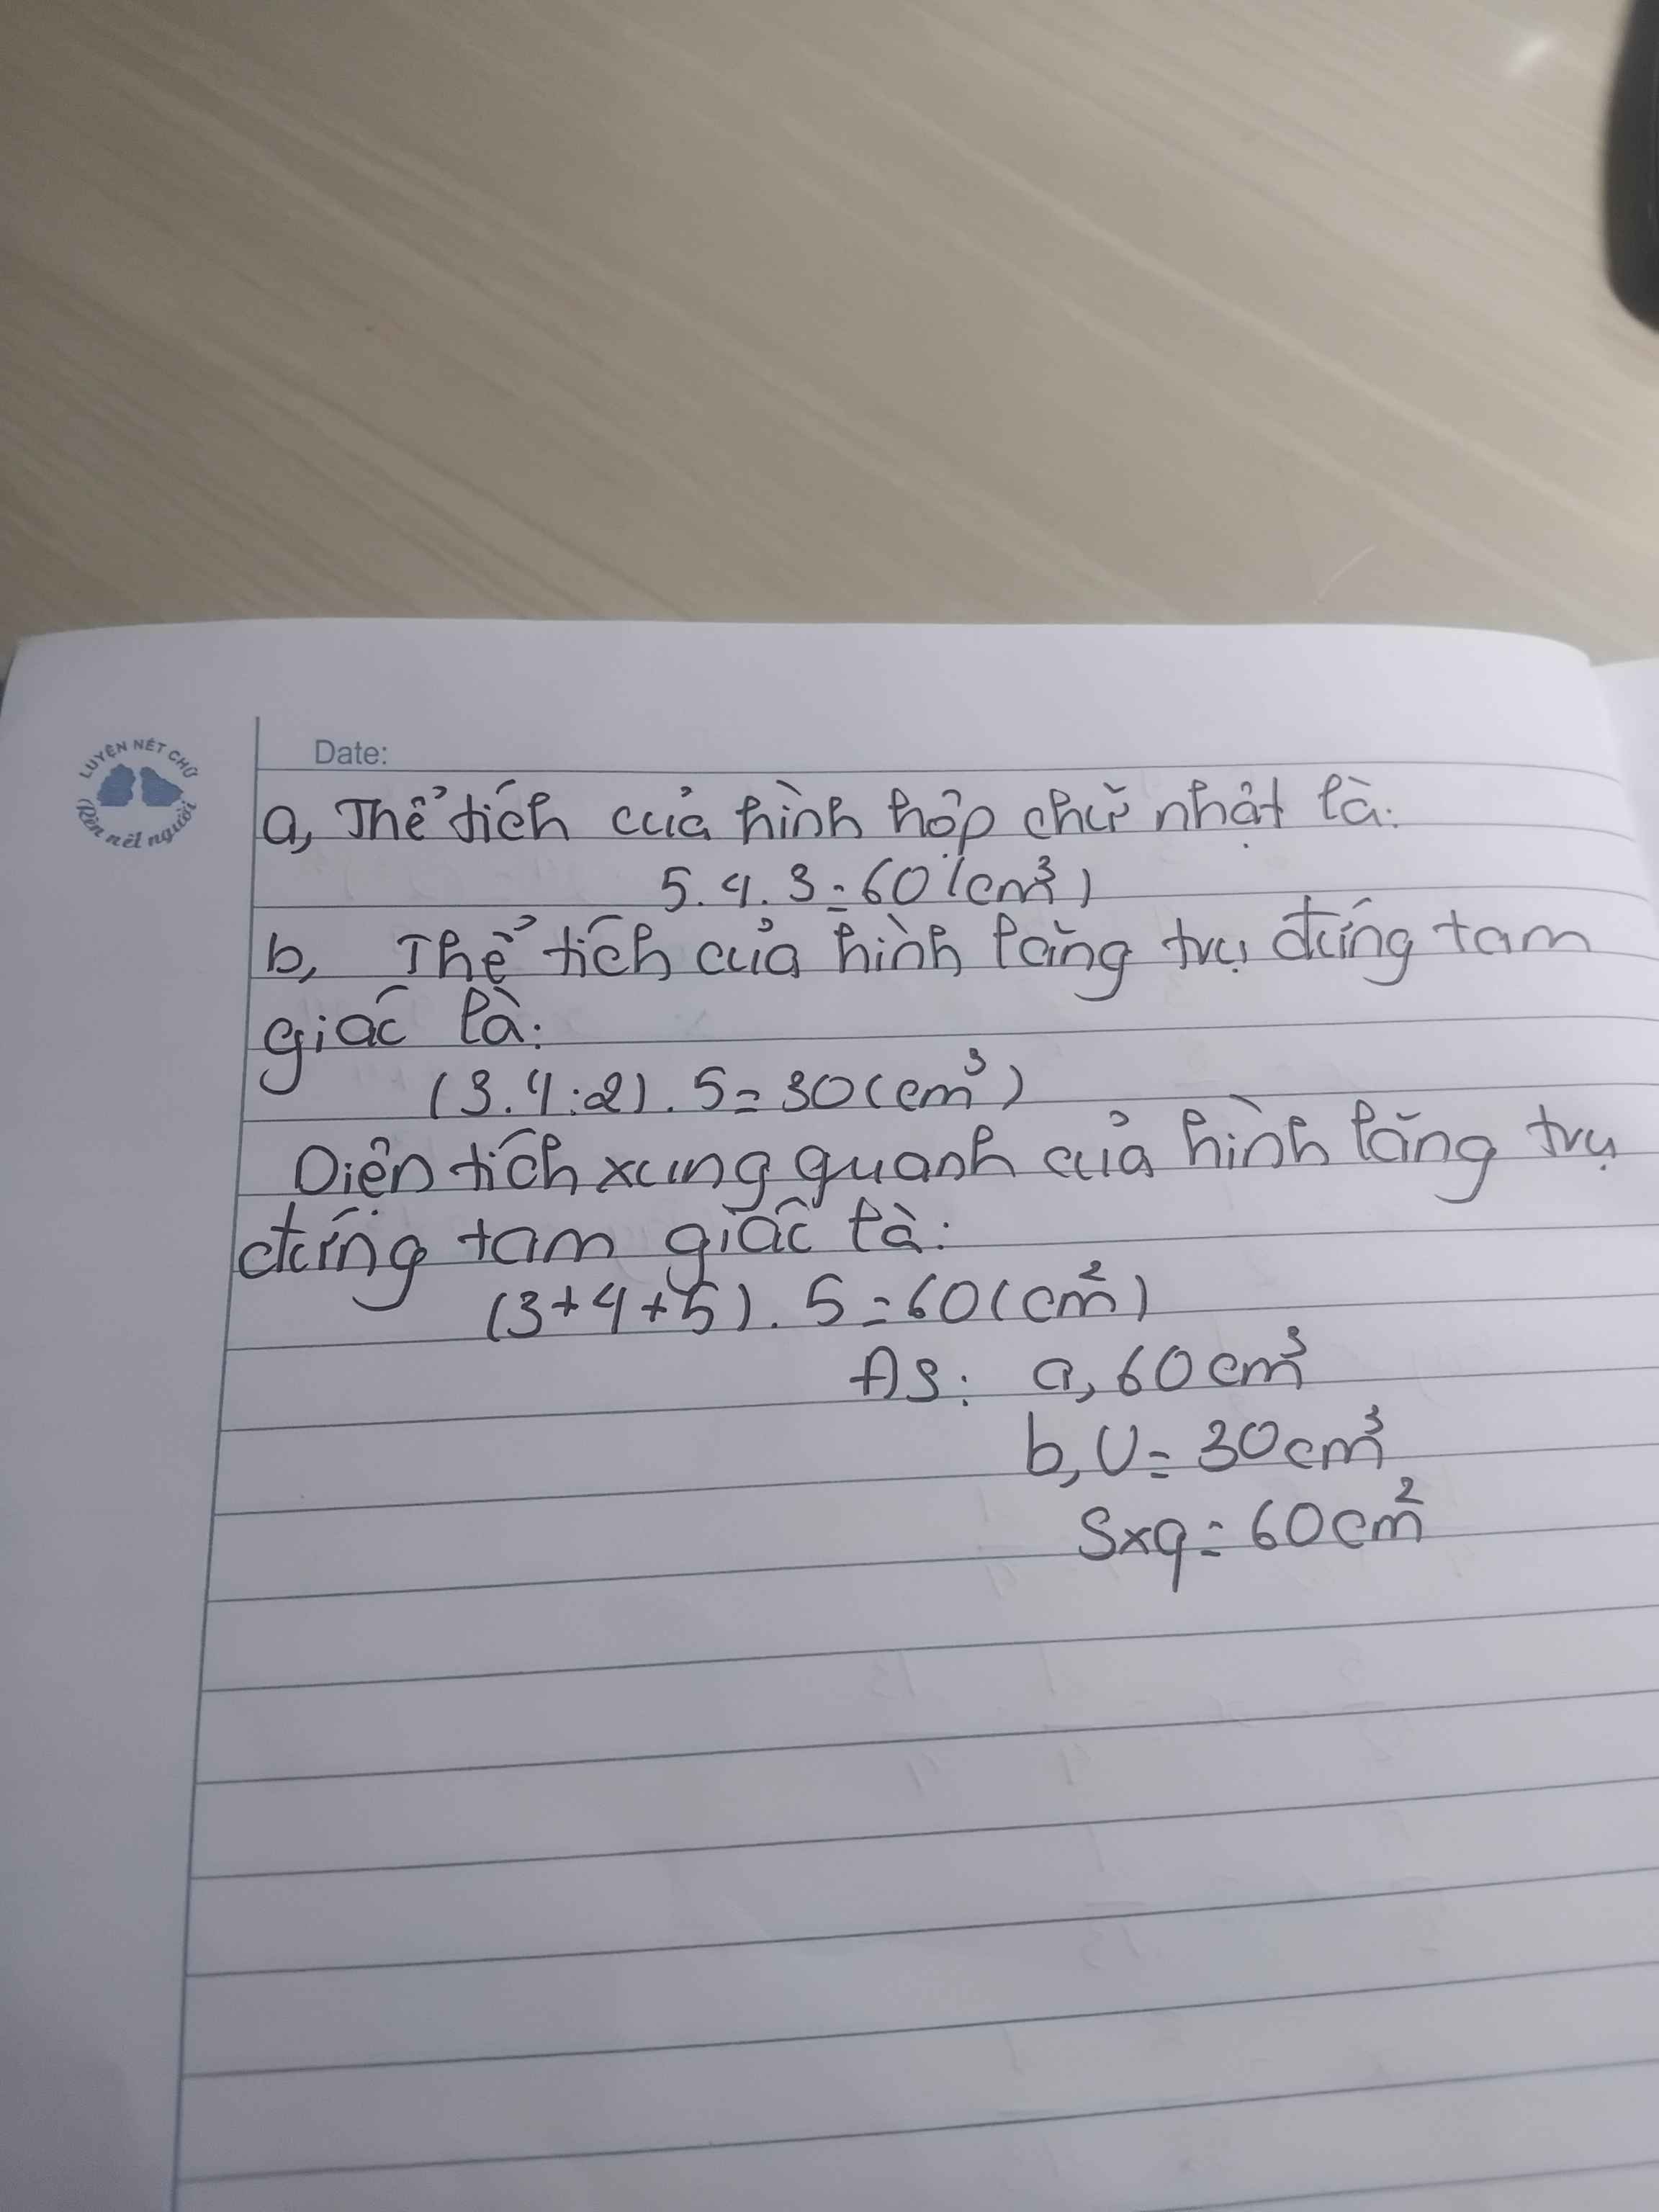 LUYỆN NÉT CHỮ
Rèn nết người
Date:
a, Thể tích của hình hộp chữ nhật là:
5.4.3=60(cm³)
b, Thể tích của hình lăng trụ đứng tam
giác là:
(3.4:2).5=30(cm³)
Diện tích xung quanh của hình lăng trụ
đứng tam giác là:
(3+4+5).5=60(cm²)
ĐS: a, 60cm³
b, V=30cm³
Sxq=60cm²